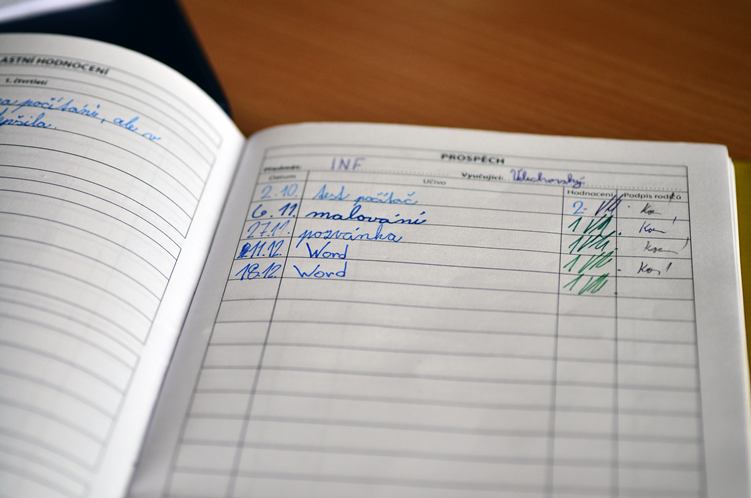 LASTNÍ HODNOCENÍ
1. čtvrtletí
na počítání, ale
PROSPĚCH
Předmět: INF Vyučující:
Datum Učivo Hodnocení Podpis rodičů
2.10. test počítač 2
6.11. malování 1
27.11. pozvánka 1
11.12. Word 1
18.12. Word 1